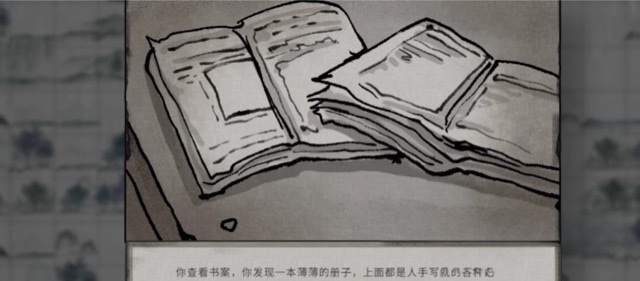 你查看书案，你发现一本薄薄的册子，上面都是人手写的各种